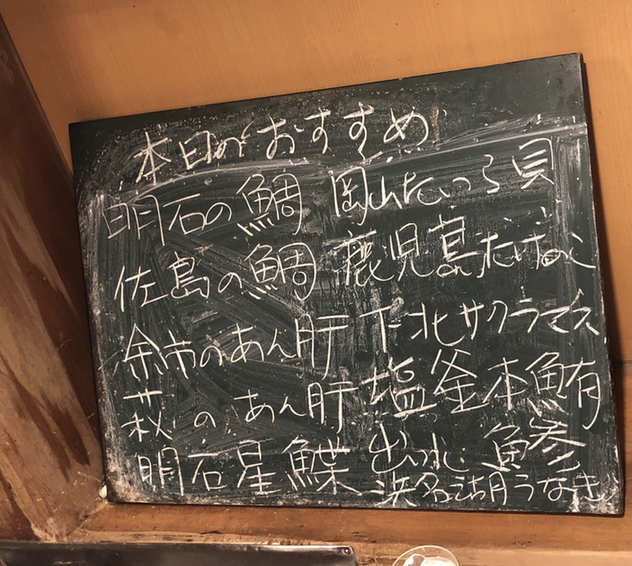 本日のおすすめ
明石の鯛 岡山たいらぎ貝
佐島の鯛 鹿児島たけのこ
余市のあん肝 下北サクラマス
萩のあん肝 塩釜本鮪
明石星鰈 出水鯵
浜名湖うなぎ